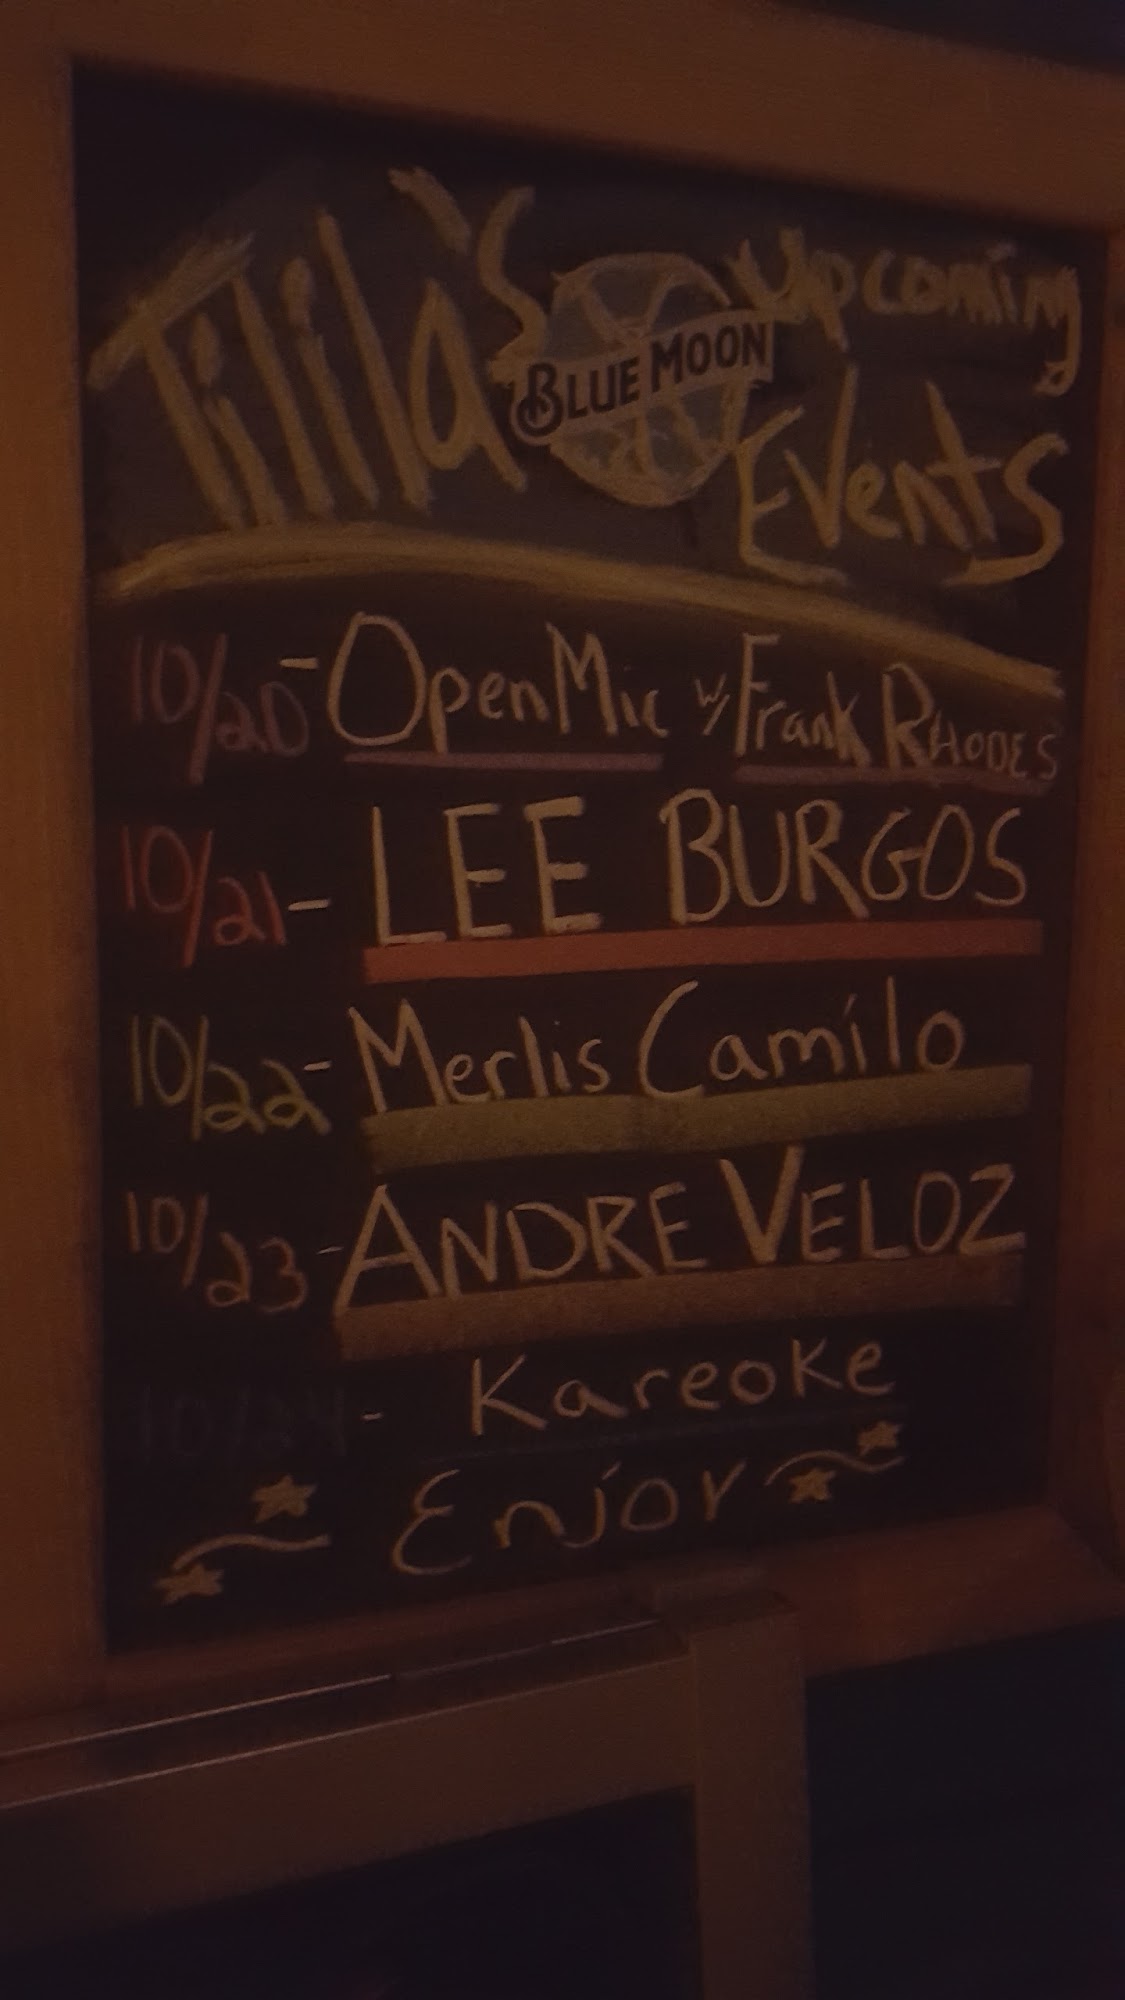 Tilila's
BLUE MOON
Upcoming
Events
10/20 - Open Mic w/ Frank RHODES
10/21 - LEE BURGOS
10/22 - Merlis Camilo
10/23 - ANDRE VELOZ
10/24 - Kareoke
Enjoy